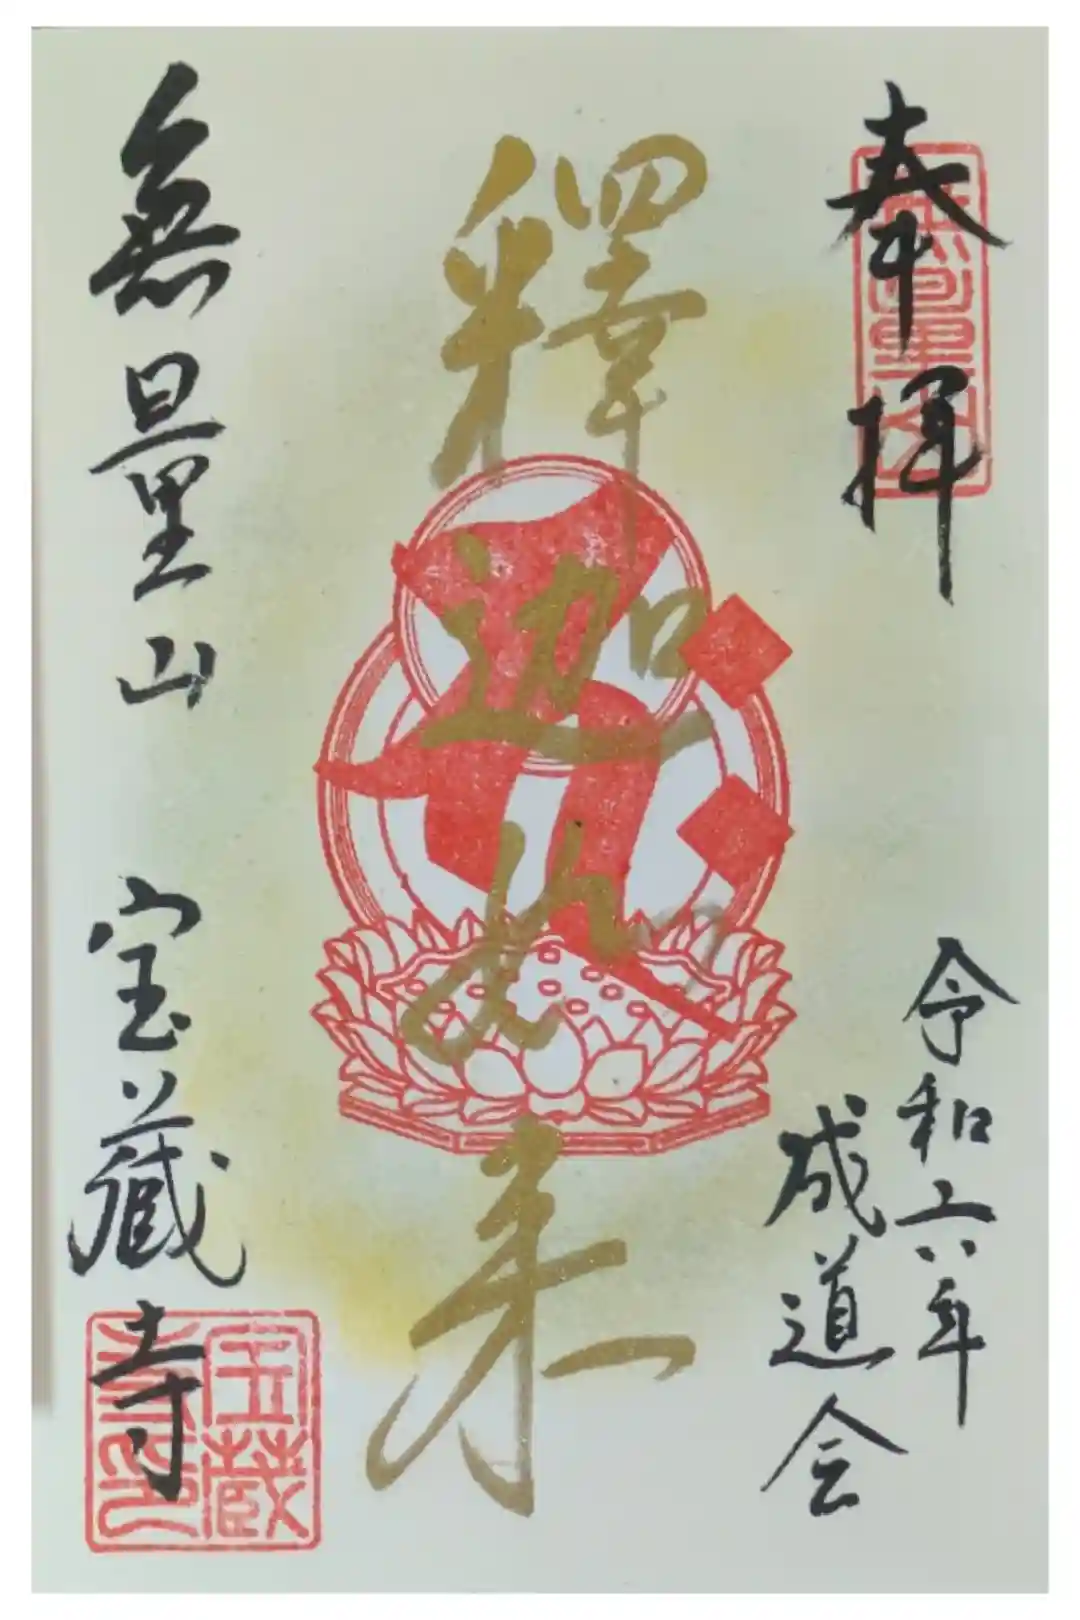 奉拝
無量山
令和六年
成道会
釋迦如来
無量山 宝蔵寺
宝蔵寺印